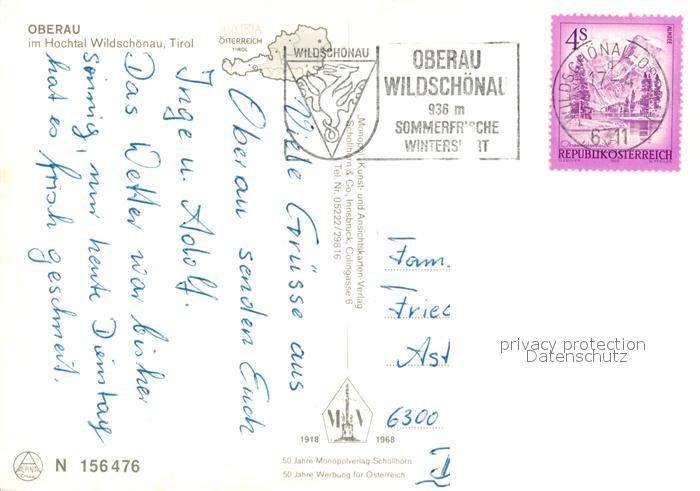 OBERAU
im Hochtal Wildschönau, Tirol
AUSTRIA
ÖSTERREICH
TIROL
WILDSCHÖNAU
OBERAU
WILDSCHÖNAU
936 m
SOMMERFRISCHE
4S
REPUBLIK ÖSTERREICH
Viele Grüsse aus
Oberau senden Euch
Inge u. Adolf.
Das Wetter war bisher
sonnig, nur heute Dienstag
hat es frisch geschneit.
Monopol Kunst- und Ansichtskarten-Verlag
Schöllhorn & Co. Innsbruck, Colingasse 6
Tel. Nr. 05222/29816
Fam.
Fried
Ast
6300
privacy protection
Datenschutz
M V
1918 1968
50 Jahre Monopolverlag Schöllhorn
50 Jahre Werbung für Österreich
N 156476